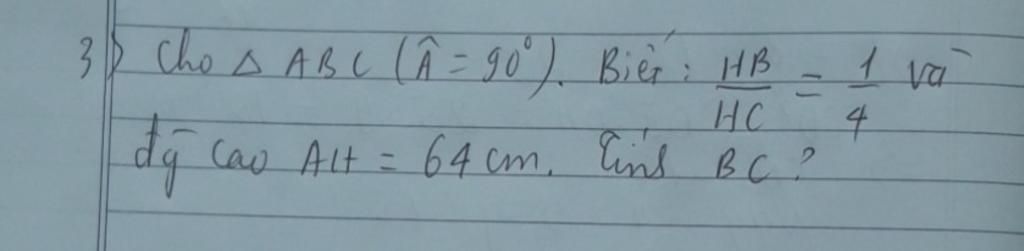 3) Cho △ ABC (Â = 90°). Biết: HB/HC = 1/4 và
đg cao AH = 64 cm. Tính BC?